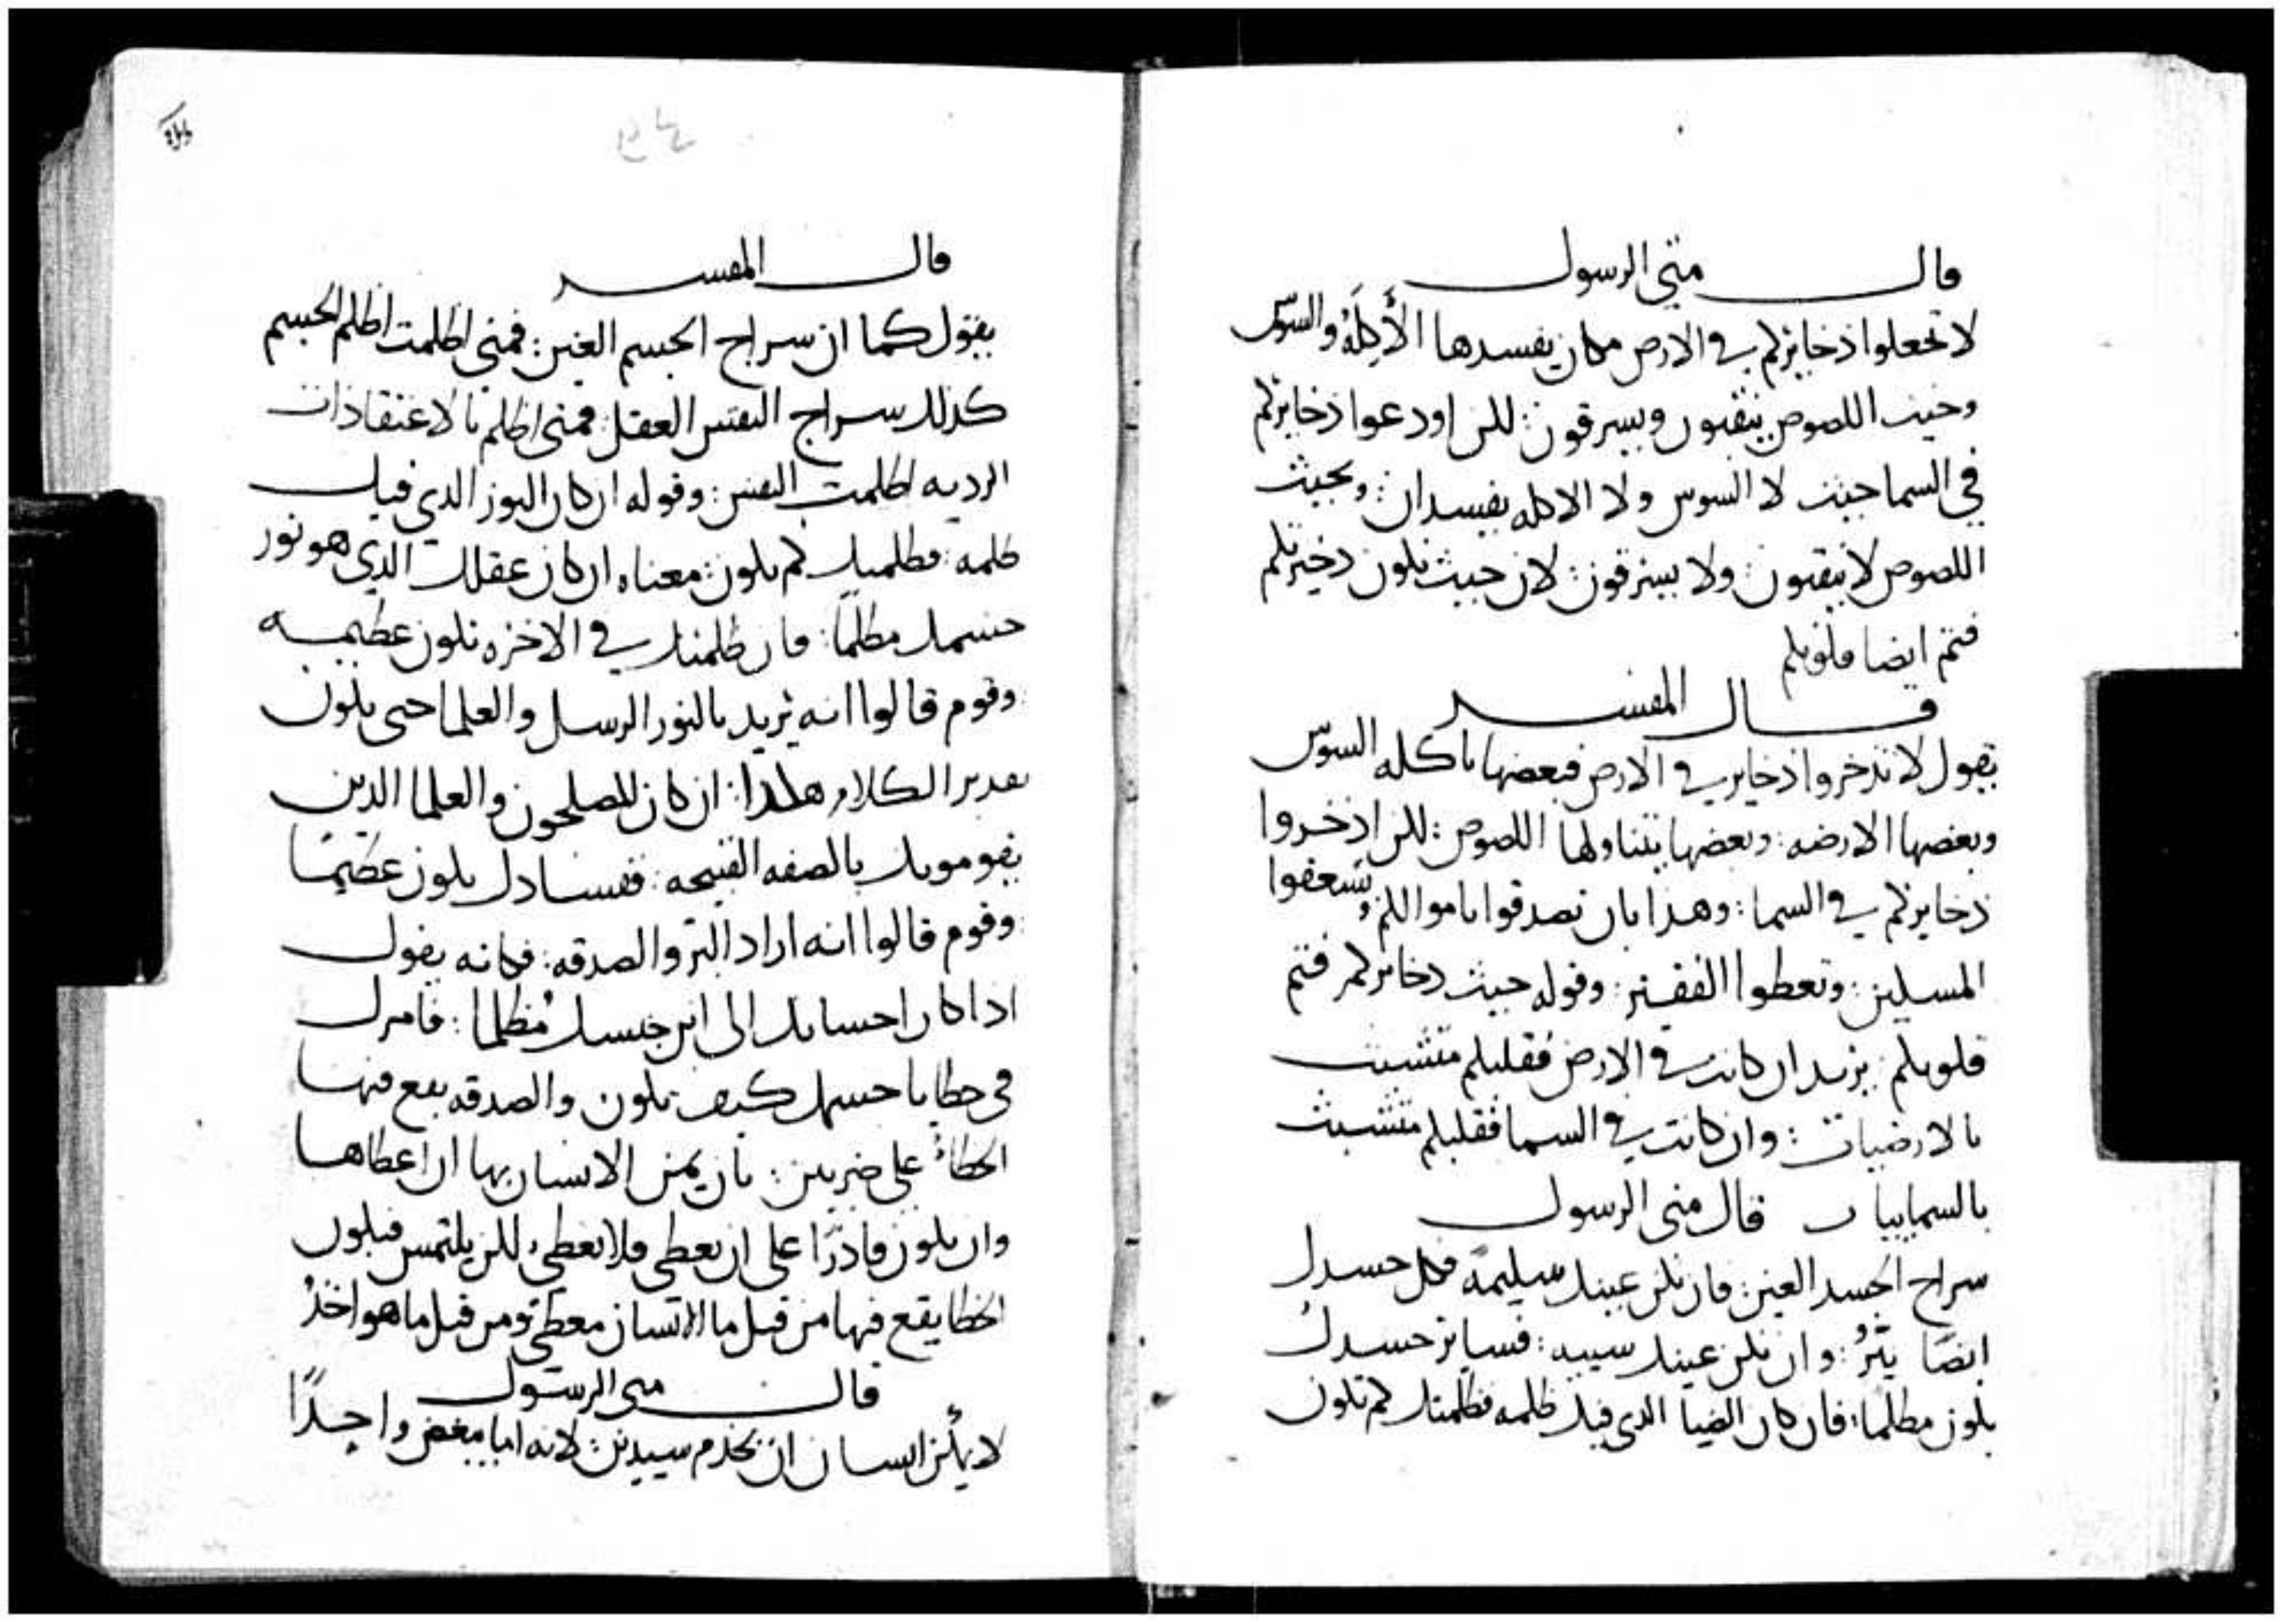 قال متى الرسول
لا تجعلوا ذخايركم في الارض مكان يفسدها الأَكِلَةُ والسوس
وحيث اللصوص ينقبون ويسرقون: لكن اودعوا ذخايركم
في السما حيث لا السوس ولا الاكله يفسدان: وبحيث
اللصوص لا ينقبون: ولا يسرقون: لان حيث تكون ذخيرتكم
فثم ايضا قلوبكم
قال المفسر
يقول لا تذخروا ذخاير في الارض فبعضها ياكله السوس
وبعضها الارضه: وبعضها يتناولها اللصوص: لكن اذخروا
ذخايركم في السما: وهذا بان تصدقوا باموالكم وتسعفوا
المسلين: وتعطوا الفقير: وقوله حيث ذخائركم فثم
قلوبكم: يريد ان كانت في الارض فقلبكم متشبث
بالارضيات: وان كانت في السما فقلبكم متشبث
بالسماييات قال متى الرسول
سراج الجسد العين: فان تكن عينك سليمة فكل جسدك
ايضًا يَنُرُ: وان تكن عينك سييه: فساير جسدك
يكون مظلمًا: فان كان الضيا الذي فيك ظلمه فظلمتك كم تكون
٣٩
قال المفسر
يقول كما ان سراج الجسم العين: فمتى اظلمت اظلم الجسم
كذلك سراج النفس العقل: فمتى اظلم بالاعتقادات
الرديه اظلمت النفس: وقوله ان كان النور الذي فيك
ظلمه: فظلمتك كم تكون: معناه ان كان عقلك الذي هو نور
جسمك مظلمًا: فان ظلمتك في الاخره تكون عظيمه
: وقوم قالوا انه يريد بالنور الرسل والعلما حتى يكون
تقدير الكلام هكذا: ان كان المصلحون والعلما الذين
يقومونك بالصفه القبيحه: ففسادك يكون عظيمًا
: وقوم قالوا انه اراد البر والصدقه: فكانه يقول
اذا كان احسانك الى ابن جنسك مُظلما: فامرك
في خطايا جسمك كيف تكون والصدقه يقع فيها
الخطاءُ على ضربين: بان يمن الانسان بها ان اعطاها
وان يكون قادرًا على ان يعطى فلا يعطي: لكن يلتمس فيكون
الخطا يقع فيها من قبل ما الانسان معطي ومن قبل ما هو اخذُ
قال متى الرسول
لا يمكن انسان ان يخدم سيدين: لانه اما يبغض واحدًا